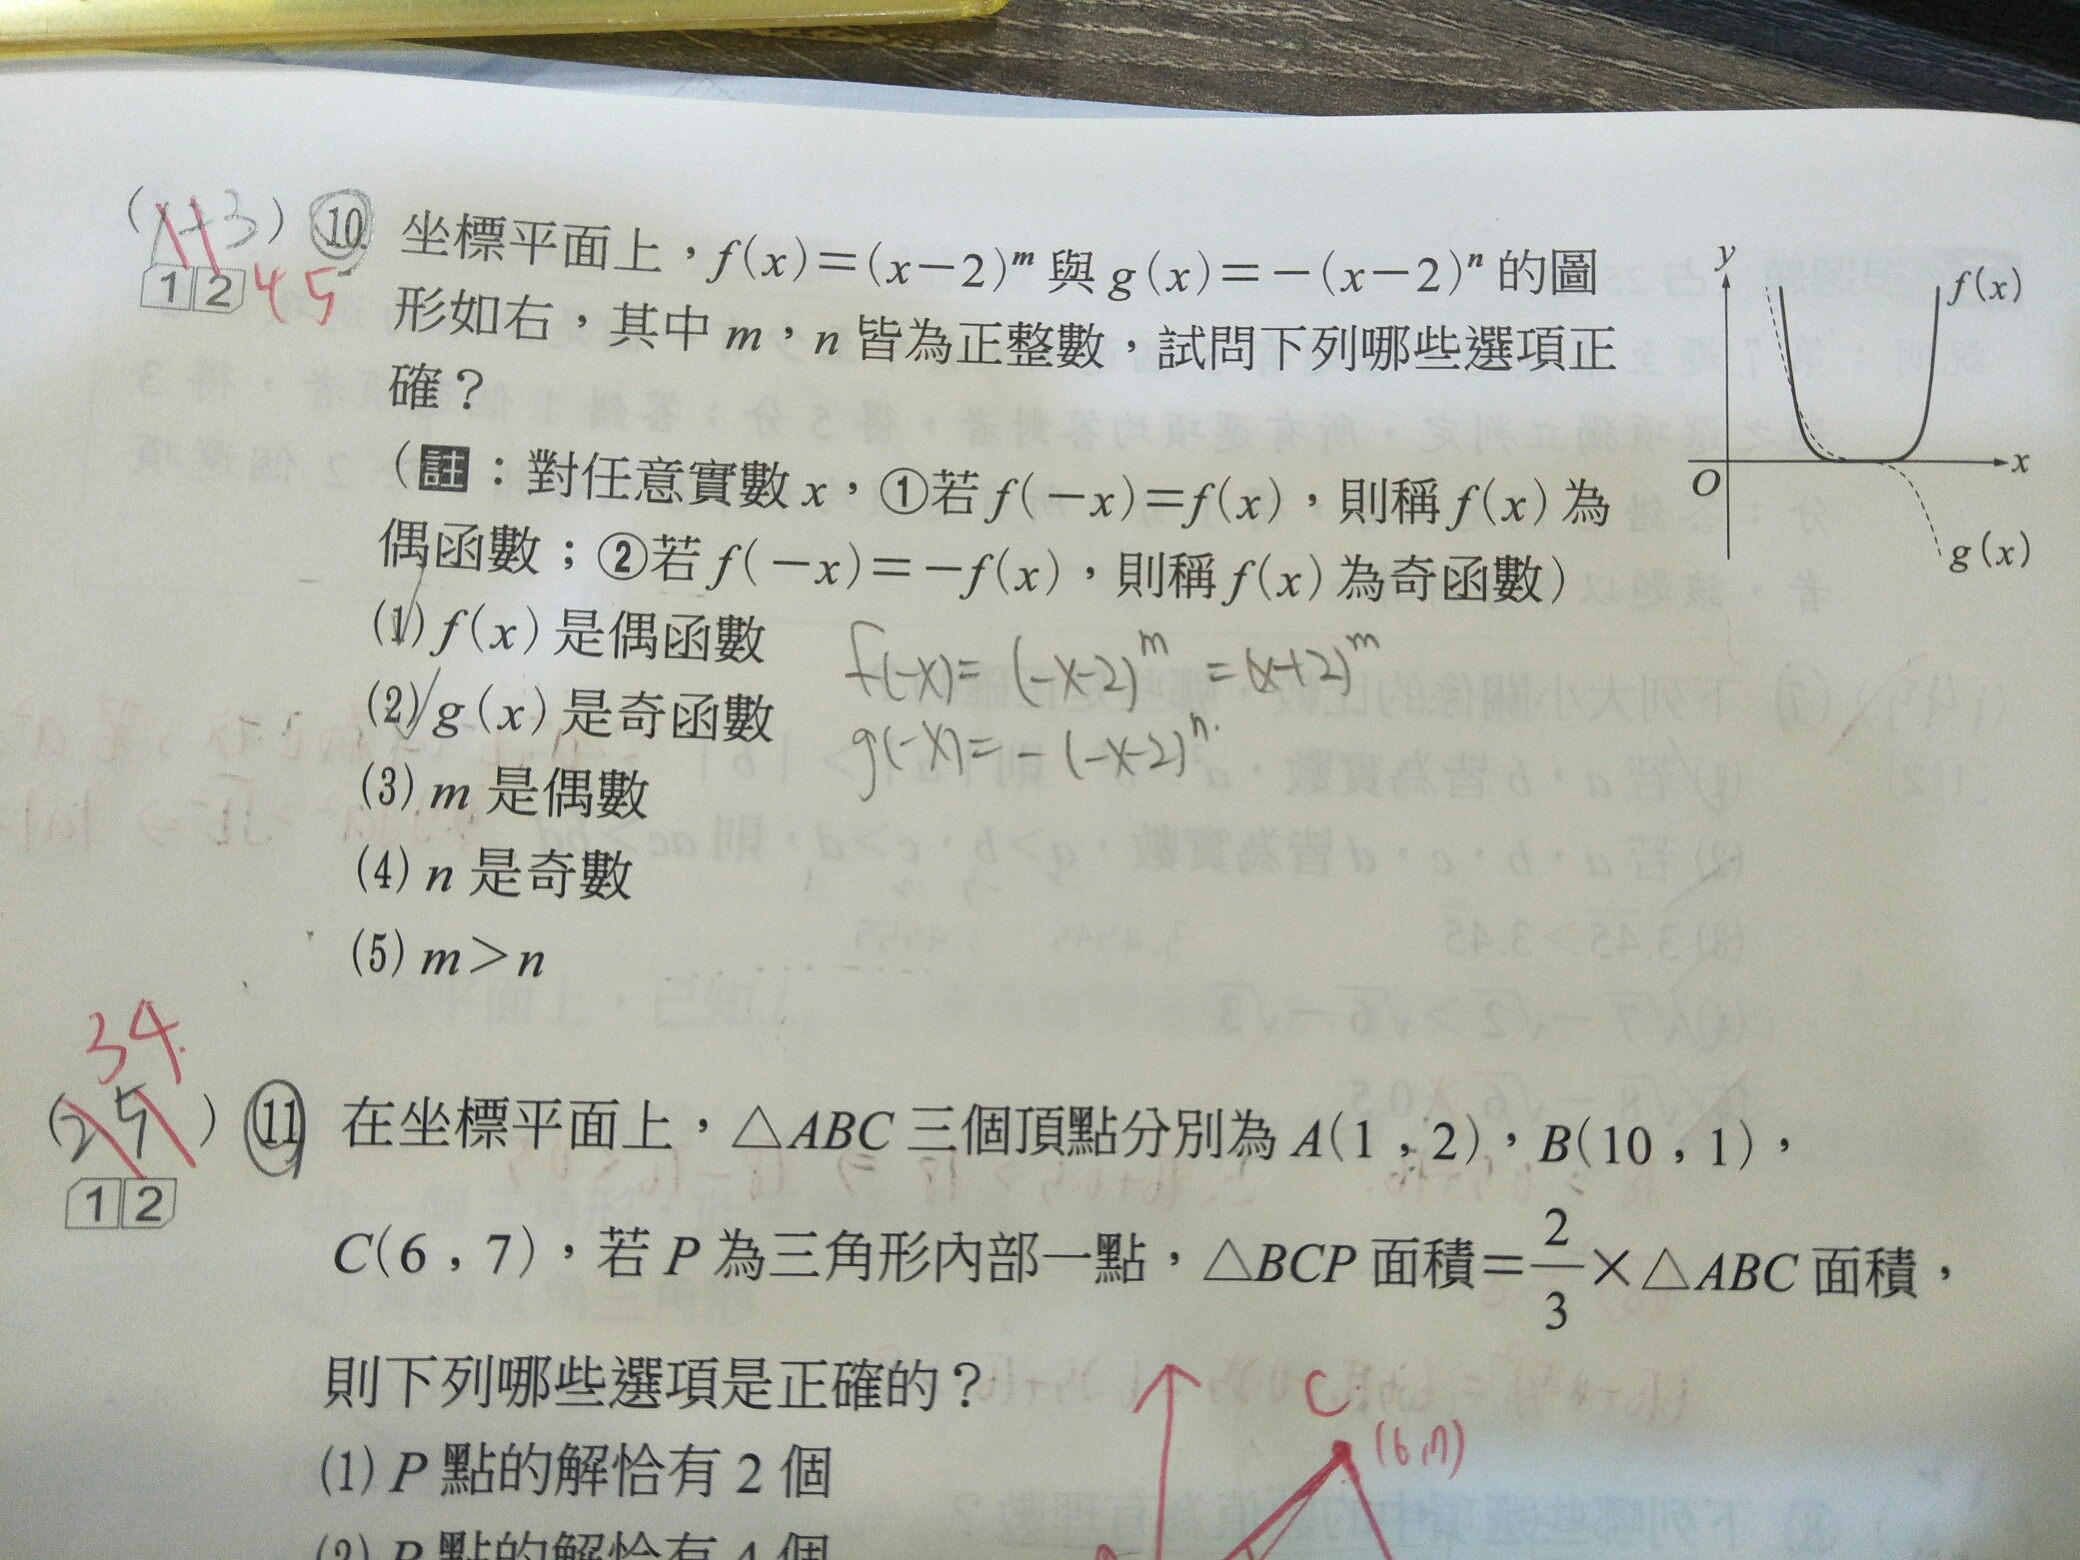 (1 2 3) 10. 坐標平面上，f(x)＝(x－2)^m 與 g(x)＝－(x－2)^n 的圖
1 2 4 5
形如右，其中 m，n 皆為正整數，試問下列哪些選項正
確？
(註：對任意實數 x，①若 f(－x)＝f(x)，則稱 f(x) 為
偶函數；②若 f(－x)＝－f(x)，則稱 f(x) 為奇函數)
y
f(x)
O
x
g(x)
(1) f(x) 是偶函數
f(-x)= (-x-2)^m = (x+2)^m
(2) g(x) 是奇函數
g(-x)= - (-x-2)^n
(3) m 是偶數
(4) n 是奇數
(5) m＞n
34
(25) 11. 在坐標平面上，△ABC 三個頂點分別為 A(1，2)，B(10，1)，
1 2
C(6，7)，若 P 為三角形內部一點，△BCP 面積＝2/3×△ABC 面積，
則下列哪些選項是正確的？
C
(6,7)
(1) P 點的解恰有 2 個
(2) P 點的解恰有 4 個